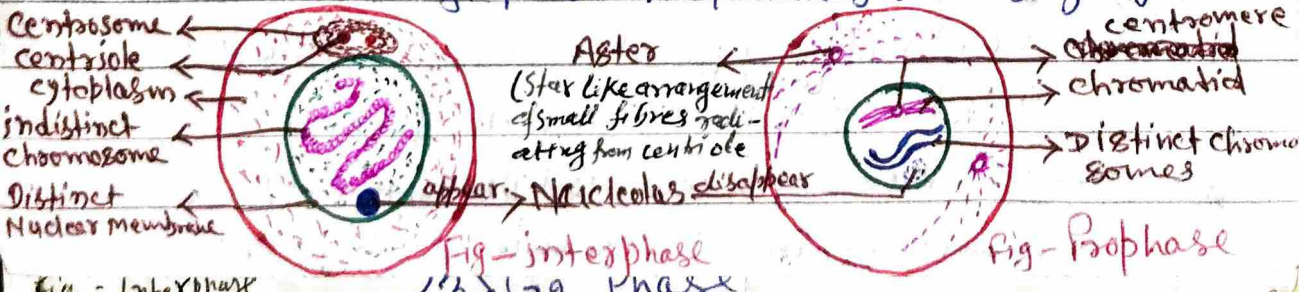 Centrosome
centriole
cytoplasm
indistinct
Chromosome
Distinct
Nuclear Membrane
Aster
(Star Like arrangement
of small fibres radi-
ating from centriole
appear
Nucleolas
disappear
Fig-interphase
centromere
chromatid
Distinct Chromo
somes
Fig-Prophase
Fig - Interphase
Phase